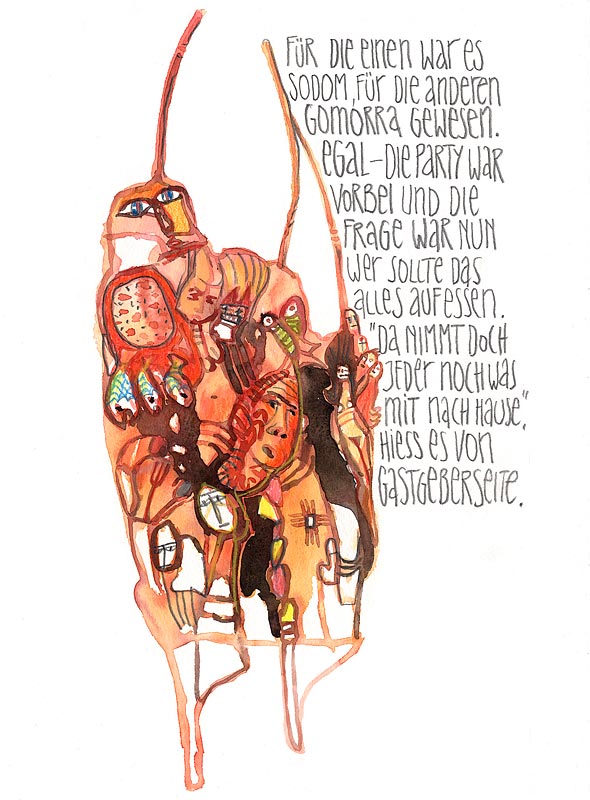 FÜR DIE EINEN WAR ES
SODOM, FÜR DIE ANDEREN
GOMORRA GEWESEN.
EGAL – DIE PARTY WAR
VORBEI UND DIE
FRAGE WAR NUN
WER SOLLTE DAS
ALLES AUFESSEN.
"DA NIMMT DOCH
JEDER NOCH WAS
MIT NACH HAUSE",
HIESS ES VON
GASTGEBERSEITE.